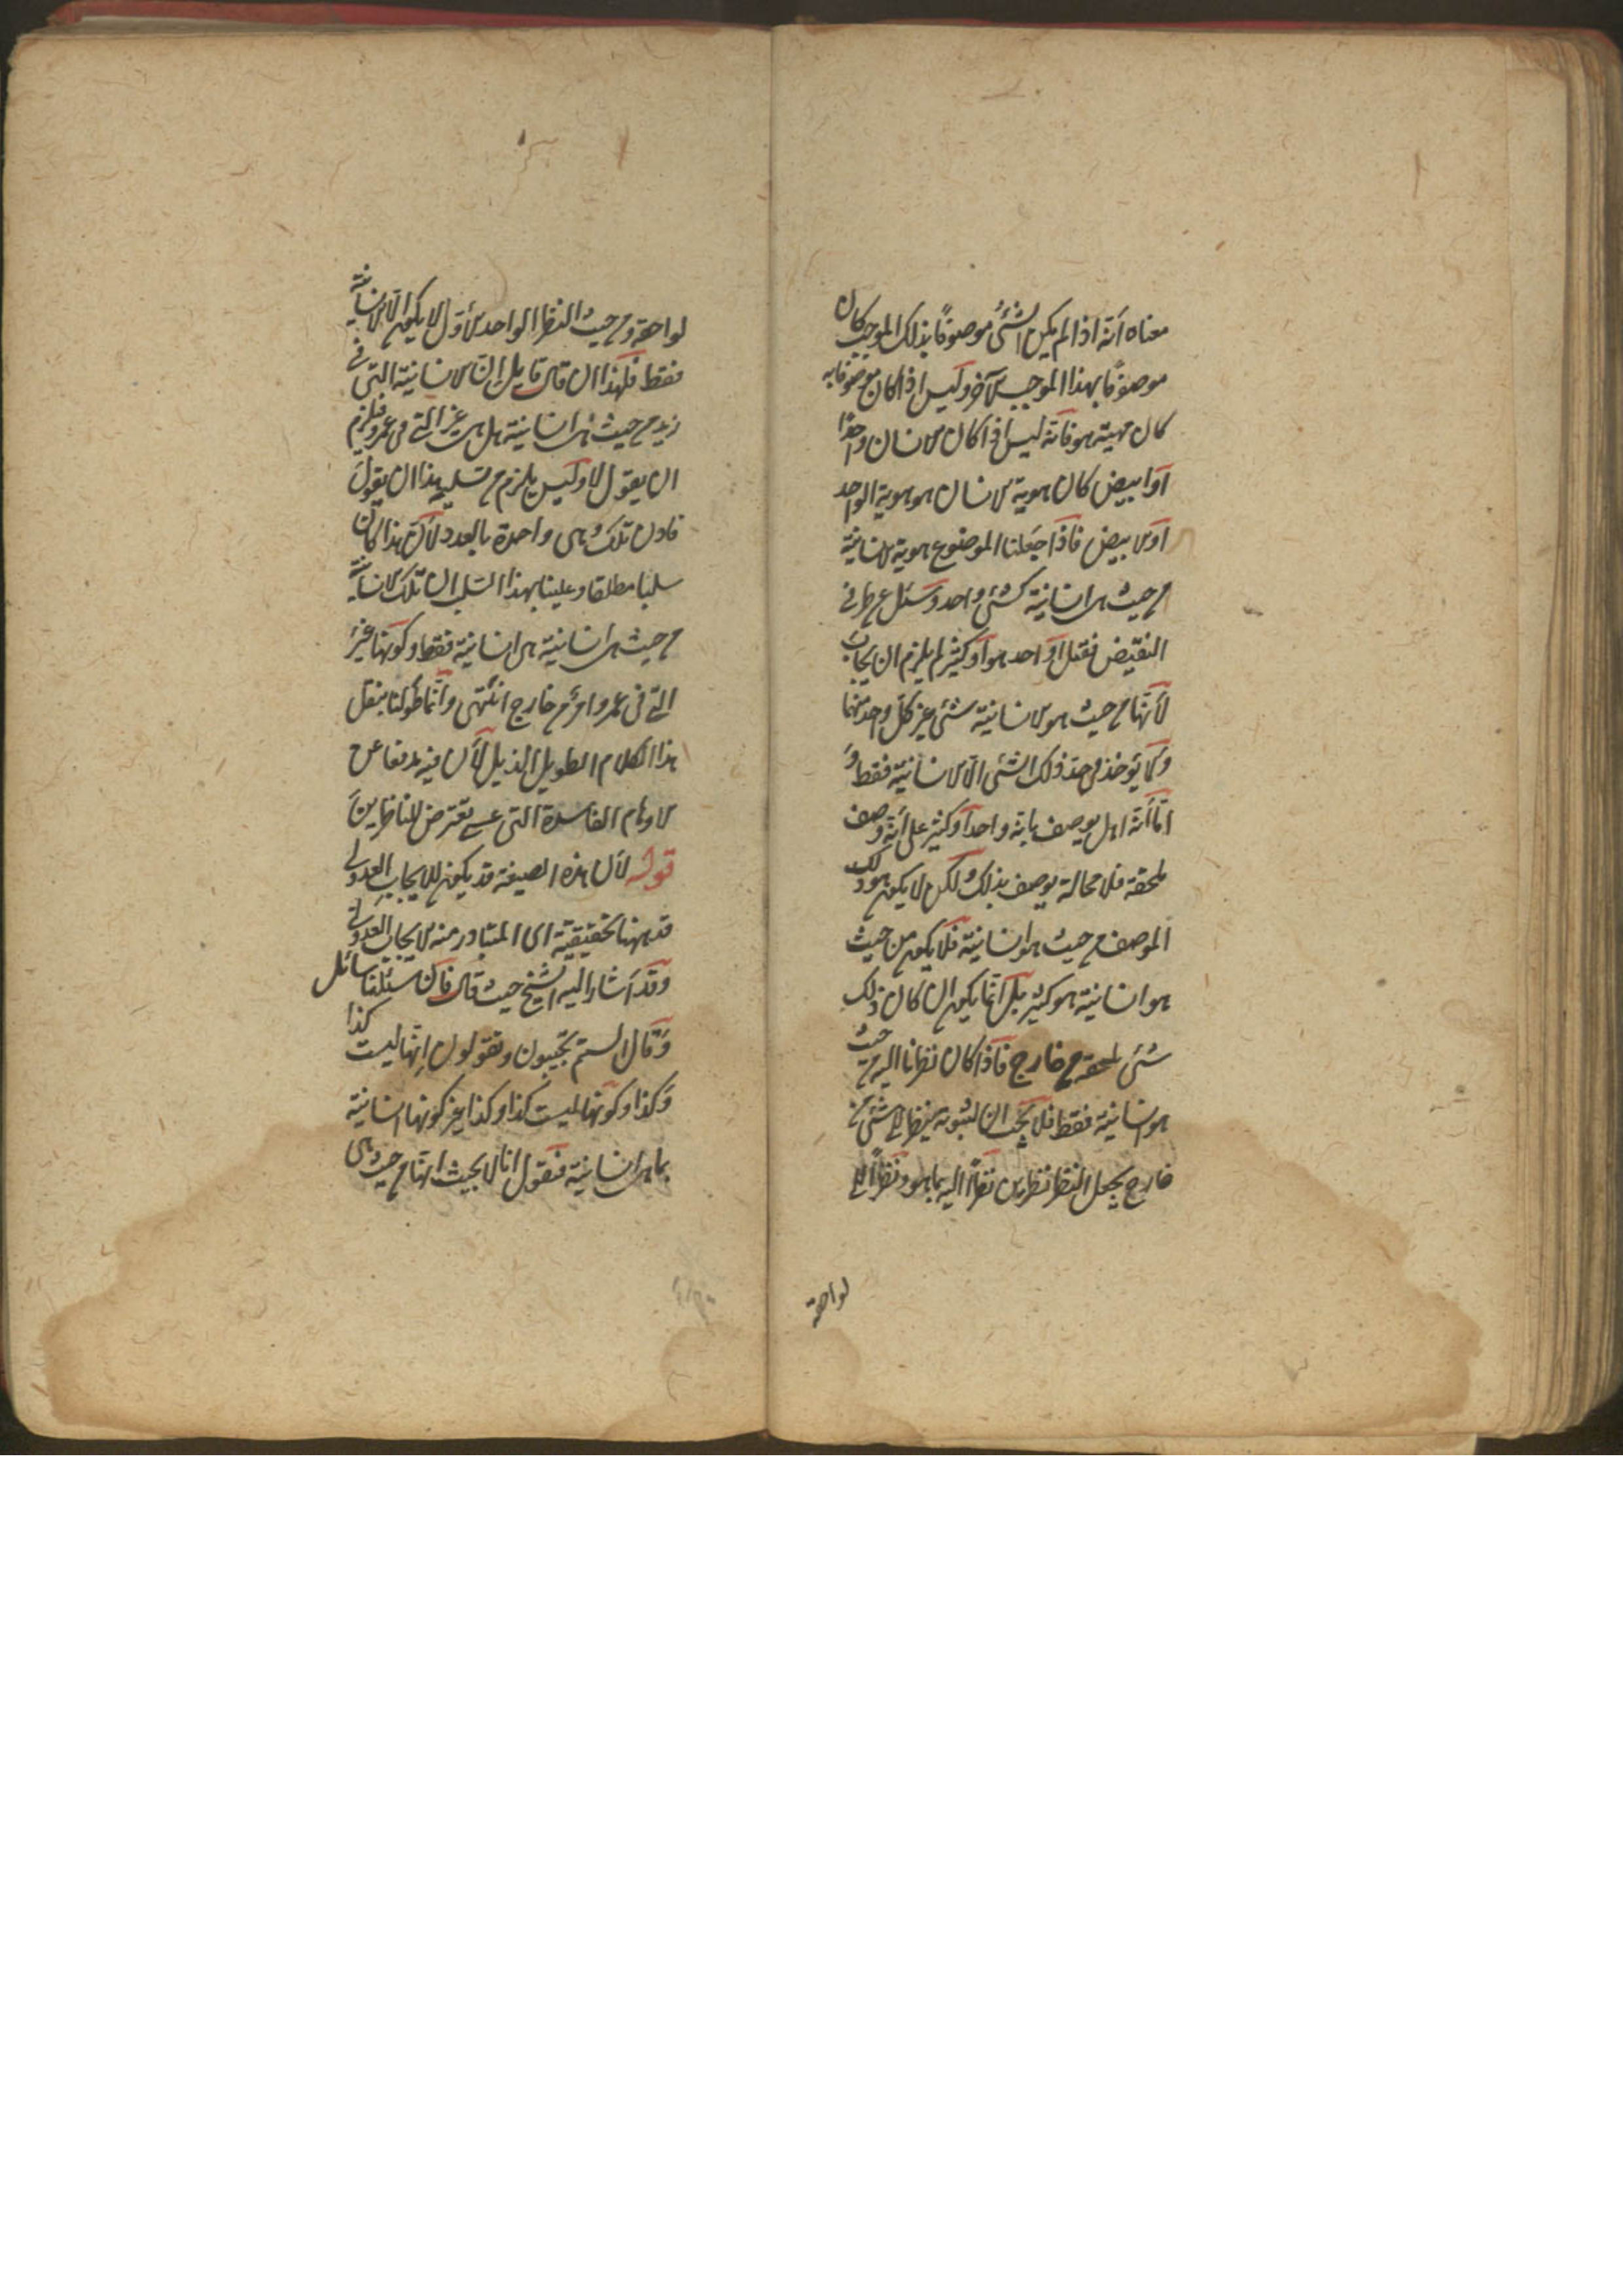 معناه أنه اذا لم يكن الشئ موصوفا بذلك الموجب كان
موصوفا بهذا الموجب الآخر وليس اذا كان موصوفا به
كان مهيته هو فانه ليس اذا كان الانسان واحدا
أو ابيض كان هوية الانسان هو هوية الواحد
أو الابيض فاذا جعلنا الموضوع هوية الانسانية
من حيث هى انسانية كشئ واحد وسئل عن طرفى
النقيض فقيل أواحد هو أو كثير لم يلزم ان يجاب
لأنها من حيث هو الانسانية شئ غير كل واحد منهما
ولا يوخذ فى حد ذلك الشئ الا الانسانية فقط و
اما أنه اهل يوصف بانه واحدا وكثير على أنه وصف
يلحقه فلا محالة يوصف بذلك ولكن لا يكون هو ذلك
الموصوف من حيث هو انسانية فلا يكون من حيث
هو انسانية هو كثير بل انما يكون ان كان ذلك
شئ يلحقه من خارج فاذا كان نظرنا اليه من حيث
هو انسانية فقط فلا يجب ان نشوبه بنظر الى شئ من
خارج يجعل النظر نظرين نظرا اليه بما هو ونظرا الى
لواحقه
لواحقه ومن حيث النظر الواحد الأول لا يكون الا الانسانية
فقط فلهذا ان قال قايل ان الانسانية التى فى
زيد من حيث هى انسانية هل هى غير التى فى عمرو فيلزم
ان يقول لا وليس يلزم من تسليمه هذا ان يقول
فاذن تلك وهى واحدة بالعدد لأن هذا كان
سلبا مطلقا وعلينا بهذا السلب ان تلك الانسانية
من حيث هى انسانية هى انسانية فقط وكونها غير
التى فى عمرو امر من خارج انتهى وانما طولنا بنقل
هذا الكلام الطويل الذيل لأن فيه مدفعا عن
الاوهام الفاسدة التى عسى تعترض للناظرين
قوله لأن هذه الصيغة قد يكون للايجاب العدولى
قد ههنا تحقيقية اى المتبادر منه الايجاب العدولى
وقد أشار اليه الشيخ حيث قال فان سئلنا سائل
وقال الستم تجيبون وتقولون انها ليست كذا
وكذا وكونها ليست كذا وكذا غير كونها انسانية
بما هى انسانية فنقول انا لا نجيب انها من حيث هى